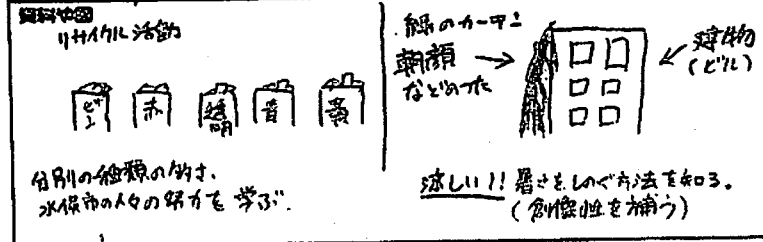 資料や図
リサイクル活動
ビン
赤
透明
青
分別の種類の多さ、
水俣市の人々の努力を学ぶ.
緑のカーテン
朝顔 →
などのつた
← 建物
(ビル)
涼しい!! 暑さをしのぐ方法を知る。